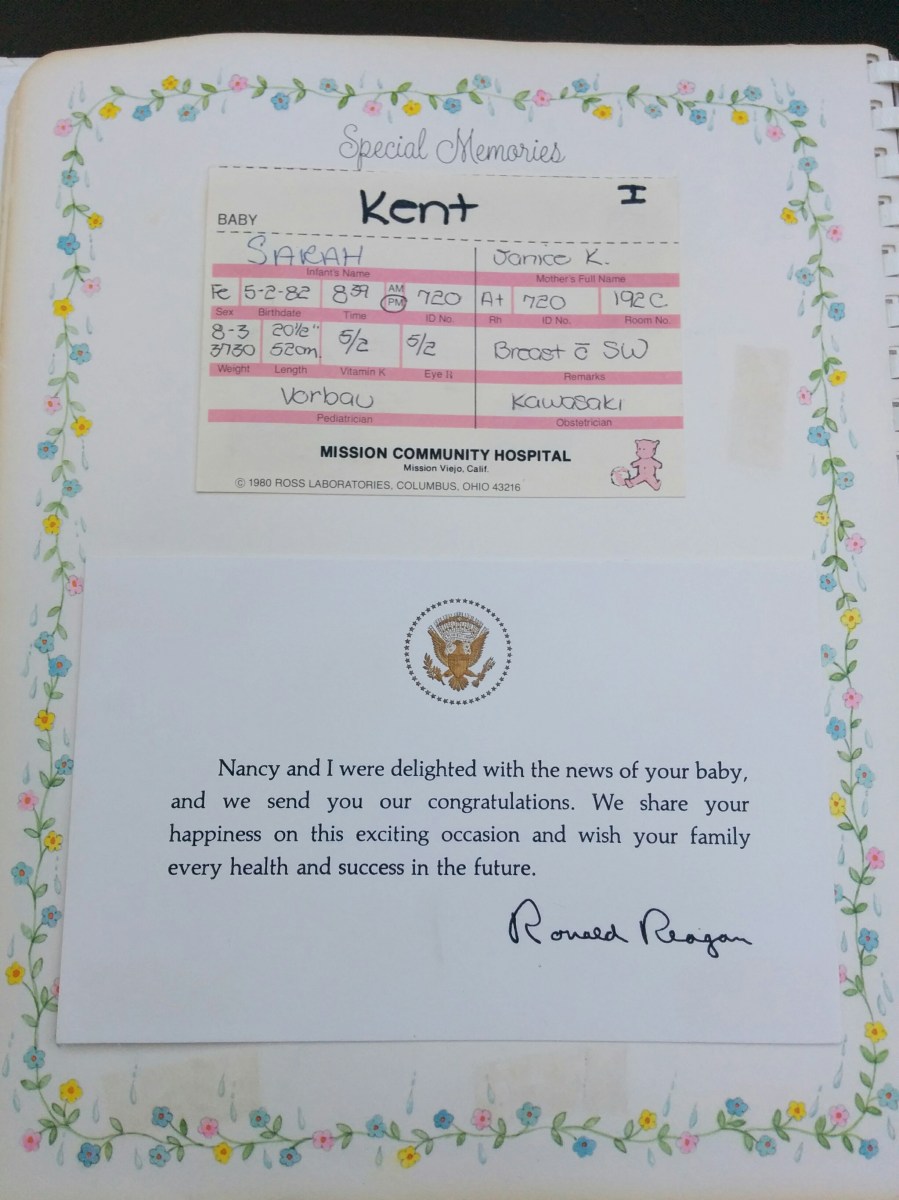 Special Memories
BABY Kent I
SARAH Janice K.
Infant's Name Mother's Full Name
Fe 5-2-82 8 39 AM PM 720 A+ 720 192 C
Sex Birthdate Time ID No. Rh ID No. Room No.
8-3 20 1/2" 5/2 5/2 Breast c̄ SW
3730 52cm.
Weight Length Vitamin K Eye Remarks
Vorbau Kawasaki
Pediatrician Obstetrician
MISSION COMMUNITY HOSPITAL
Mission Viejo, Calif.
© 1980 ROSS LABORATORIES, COLUMBUS, OHIO 43216
Nancy and I were delighted with the news of your baby,
and we send you our congratulations. We share your
happiness on this exciting occasion and wish your family
every health and success in the future.
Ronald Reagan